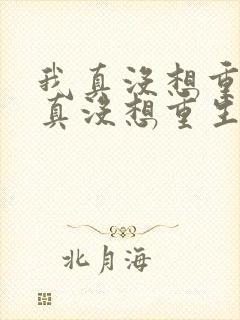 我真没想重
真没想重生
北月海